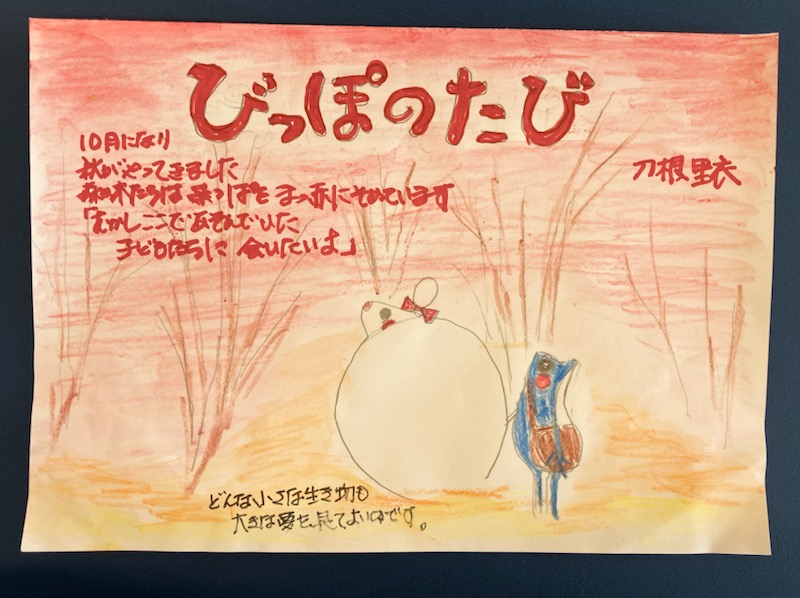 びっぽのたび
刀根里衣
10月になり
秋がやってきました
森の木たちは葉っぱをまっ赤にそめています
「むかしここであそんでいた
子どもたちに会いたいよ」
どんな小さな生き物も
大きな夢を見てよいのです。